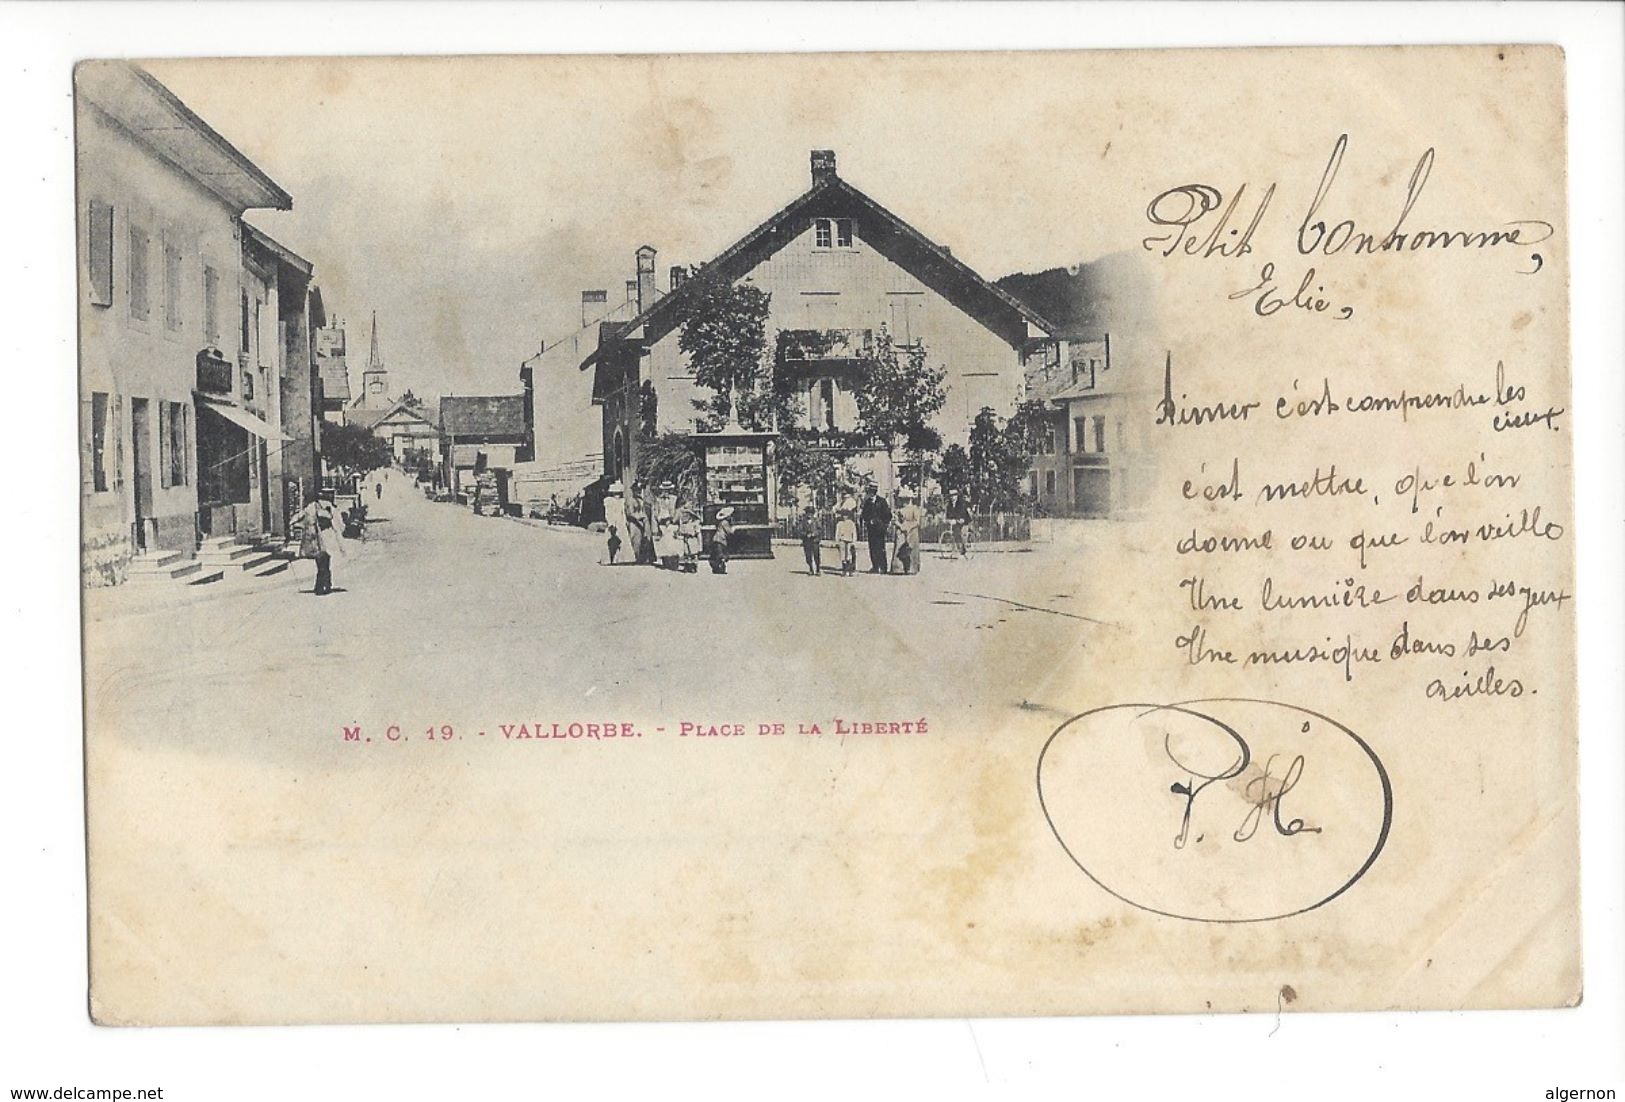 Petit bonhomme,
Elie,
Aimer c'est comprendre les
cieux.
c'est mettre, que l'on
dorme ou que l'on veille
Une lumière dans ses yeux
Une musique dans ses
oreilles.
P. H
M. C. 19. - VALLORBE. - PLACE DE LA LIBERTÉ
www.delcampe.net
algernon